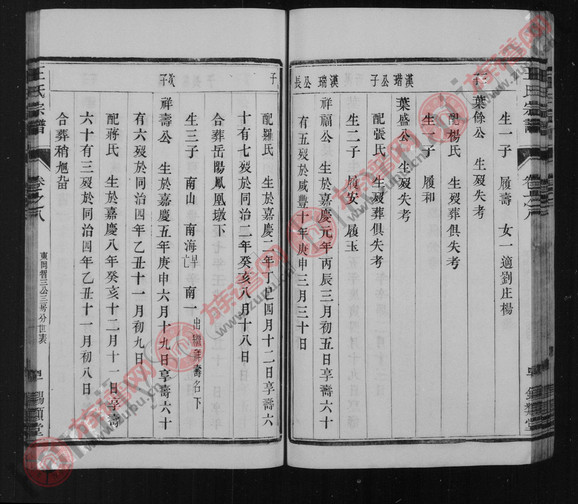 生一子 履壽 女一適劉庄楊
葉條公 生歿失考
配楊氏 生歿葬俱失考
生一子 履和
漢瑞公子
葉盛公 生歿失考
配張氏 生歿葬俱失考
生二子 履安 履玉
漢瑞公長
祥福公 生於嘉慶元年丙辰三月初五日享壽六十
有五歿於咸豐十年庚申三月三十日
子
配羅氏 生於嘉慶二年丁巳四月十二日享壽六
十有七歿於同治二年癸亥八月十八日
合葬岳陽鳳凰墩下
生三子 南山 南海早亡 南一出繼祥壽名下
次子
祥壽公 生於嘉慶五年庚申六月十九日享壽六十
有六歿於同治四年乙丑十一月初九日
配蔣氏 生於嘉慶八年癸亥十二月十一日享壽
六十有三歿於同治四年乙丑十一月初八日
合葬稍尬旮
王氏宗譜
卷之八
錫類堂
族譜网
www.zupu.cn